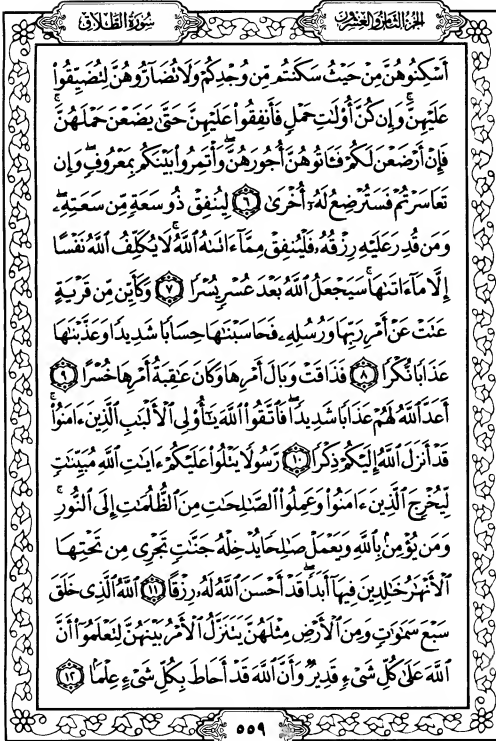 سُورَةُ الطَّلَاقِ
الجُزْءُ الثَّامِنُ وَالعِشْرُونَ
أَسْكِنُوهُنَّ مِنْ حَيْثُ سَكَنتُم مِّن وُجْدِكُمْ وَلَا تُضَآرُّوهُنَّ لِتُضَيِّقُوا۟
عَلَيْهِنَّ ۚ وَإِن كُنَّ أُو۟لَـٰتِ حَمْلٍ فَأَنفِقُوا۟ عَلَيْهِنَّ حَتَّىٰ يَضَعْنَ حَمْلَهُنَّ ۚ
فَإِنْ أَرْضَعْنَ لَكُمْ فَـَٔاتُوهُنَّ أُجُورَهُنَّ ۖ وَأْتَمِرُوا۟ بَيْنَكُم بِمَعْرُوفٍ ۖ وَإِن
تَعَاسَرْتُمْ فَسَتُرْضِعُ لَهُۥٓ أُخْرَىٰ ٦ لِيُنفِقْ ذُو سَعَةٍ مِّن سَعَتِهِۦ ۖ
وَمَن قُدِرَ عَلَيْهِ رِزْقُهُۥ فَلْيُنفِقْ مِمَّآ ءَاتَىٰهُ ٱللَّهُ ۚ لَا يُكَلِّفُ ٱللَّهُ نَفْسًا
إِلَّا مَآ ءَاتَىٰهَا ۚ سَيَجْعَلُ ٱللَّهُ بَعْدَ عُسْرٍ يُسْرًا ٧ وَكَأَيِّن مِّن قَرْيَةٍ
عَتَتْ عَنْ أَمْرِ رَبِّهَا وَرُسُلِهِۦ فَحَاسَبْنَـٰهَا حِسَابًا شَدِيدًا وَعَذَّبْنَـٰهَا
عَذَابًا نُّكْرًا ٨ فَذَاقَتْ وَبَالَ أَمْرِهَا وَكَانَ عَـٰقِبَةُ أَمْرِهَا خُسْرًا ٩
أَعَدَّ ٱللَّهُ لَهُمْ عَذَابًا شَدِيدًا ۖ فَٱتَّقُوا۟ ٱللَّهَ يَـٰٓأُو۟لِى ٱلْأَلْبَـٰبِ ٱلَّذِينَ ءَامَنُوا۟ ۚ
قَدْ أَنزَلَ ٱللَّهُ إِلَيْكُمْ ذِكْرًا ١٠ رَّسُولًا يَتْلُوا۟ عَلَيْكُمْ ءَايَـٰتِ ٱللَّهِ مُبَيِّنَـٰتٍ
لِّيُخْرِجَ ٱلَّذِينَ ءَامَنُوا۟ وَعَمِلُوا۟ ٱلصَّـٰلِحَـٰتِ مِنَ ٱلظُّلُمَـٰتِ إِلَى ٱلنُّورِ ۚ
وَمَن يُؤْمِنۢ بِٱللَّهِ وَيَعْمَلْ صَـٰلِحًا يُدْخِلْهُ جَنَّـٰتٍ تَجْرِى مِن تَحْتِهَا
ٱلْأَنْهَـٰرُ خَـٰلِدِينَ فِيهَآ أَبَدًا ۖ قَدْ أَحْسَنَ ٱللَّهُ لَهُۥ رِزْقًا ١١ ٱللَّهُ ٱلَّذِى خَلَقَ
سَبْعَ سَمَـٰوَٰتٍ وَمِنَ ٱلْأَرْضِ مِثْلَهُنَّ يَتَنَزَّلُ ٱلْأَمْرُ بَيْنَهُنَّ لِتَعْلَمُوٓا۟ أَنَّ
ٱللَّهَ عَلَىٰ كُلِّ شَىْءٍ قَدِيرٌ وَأَنَّ ٱللَّهَ قَدْ أَحَاطَ بِكُلِّ شَىْءٍ عِلْمًۢا ١٢
٥٥٩